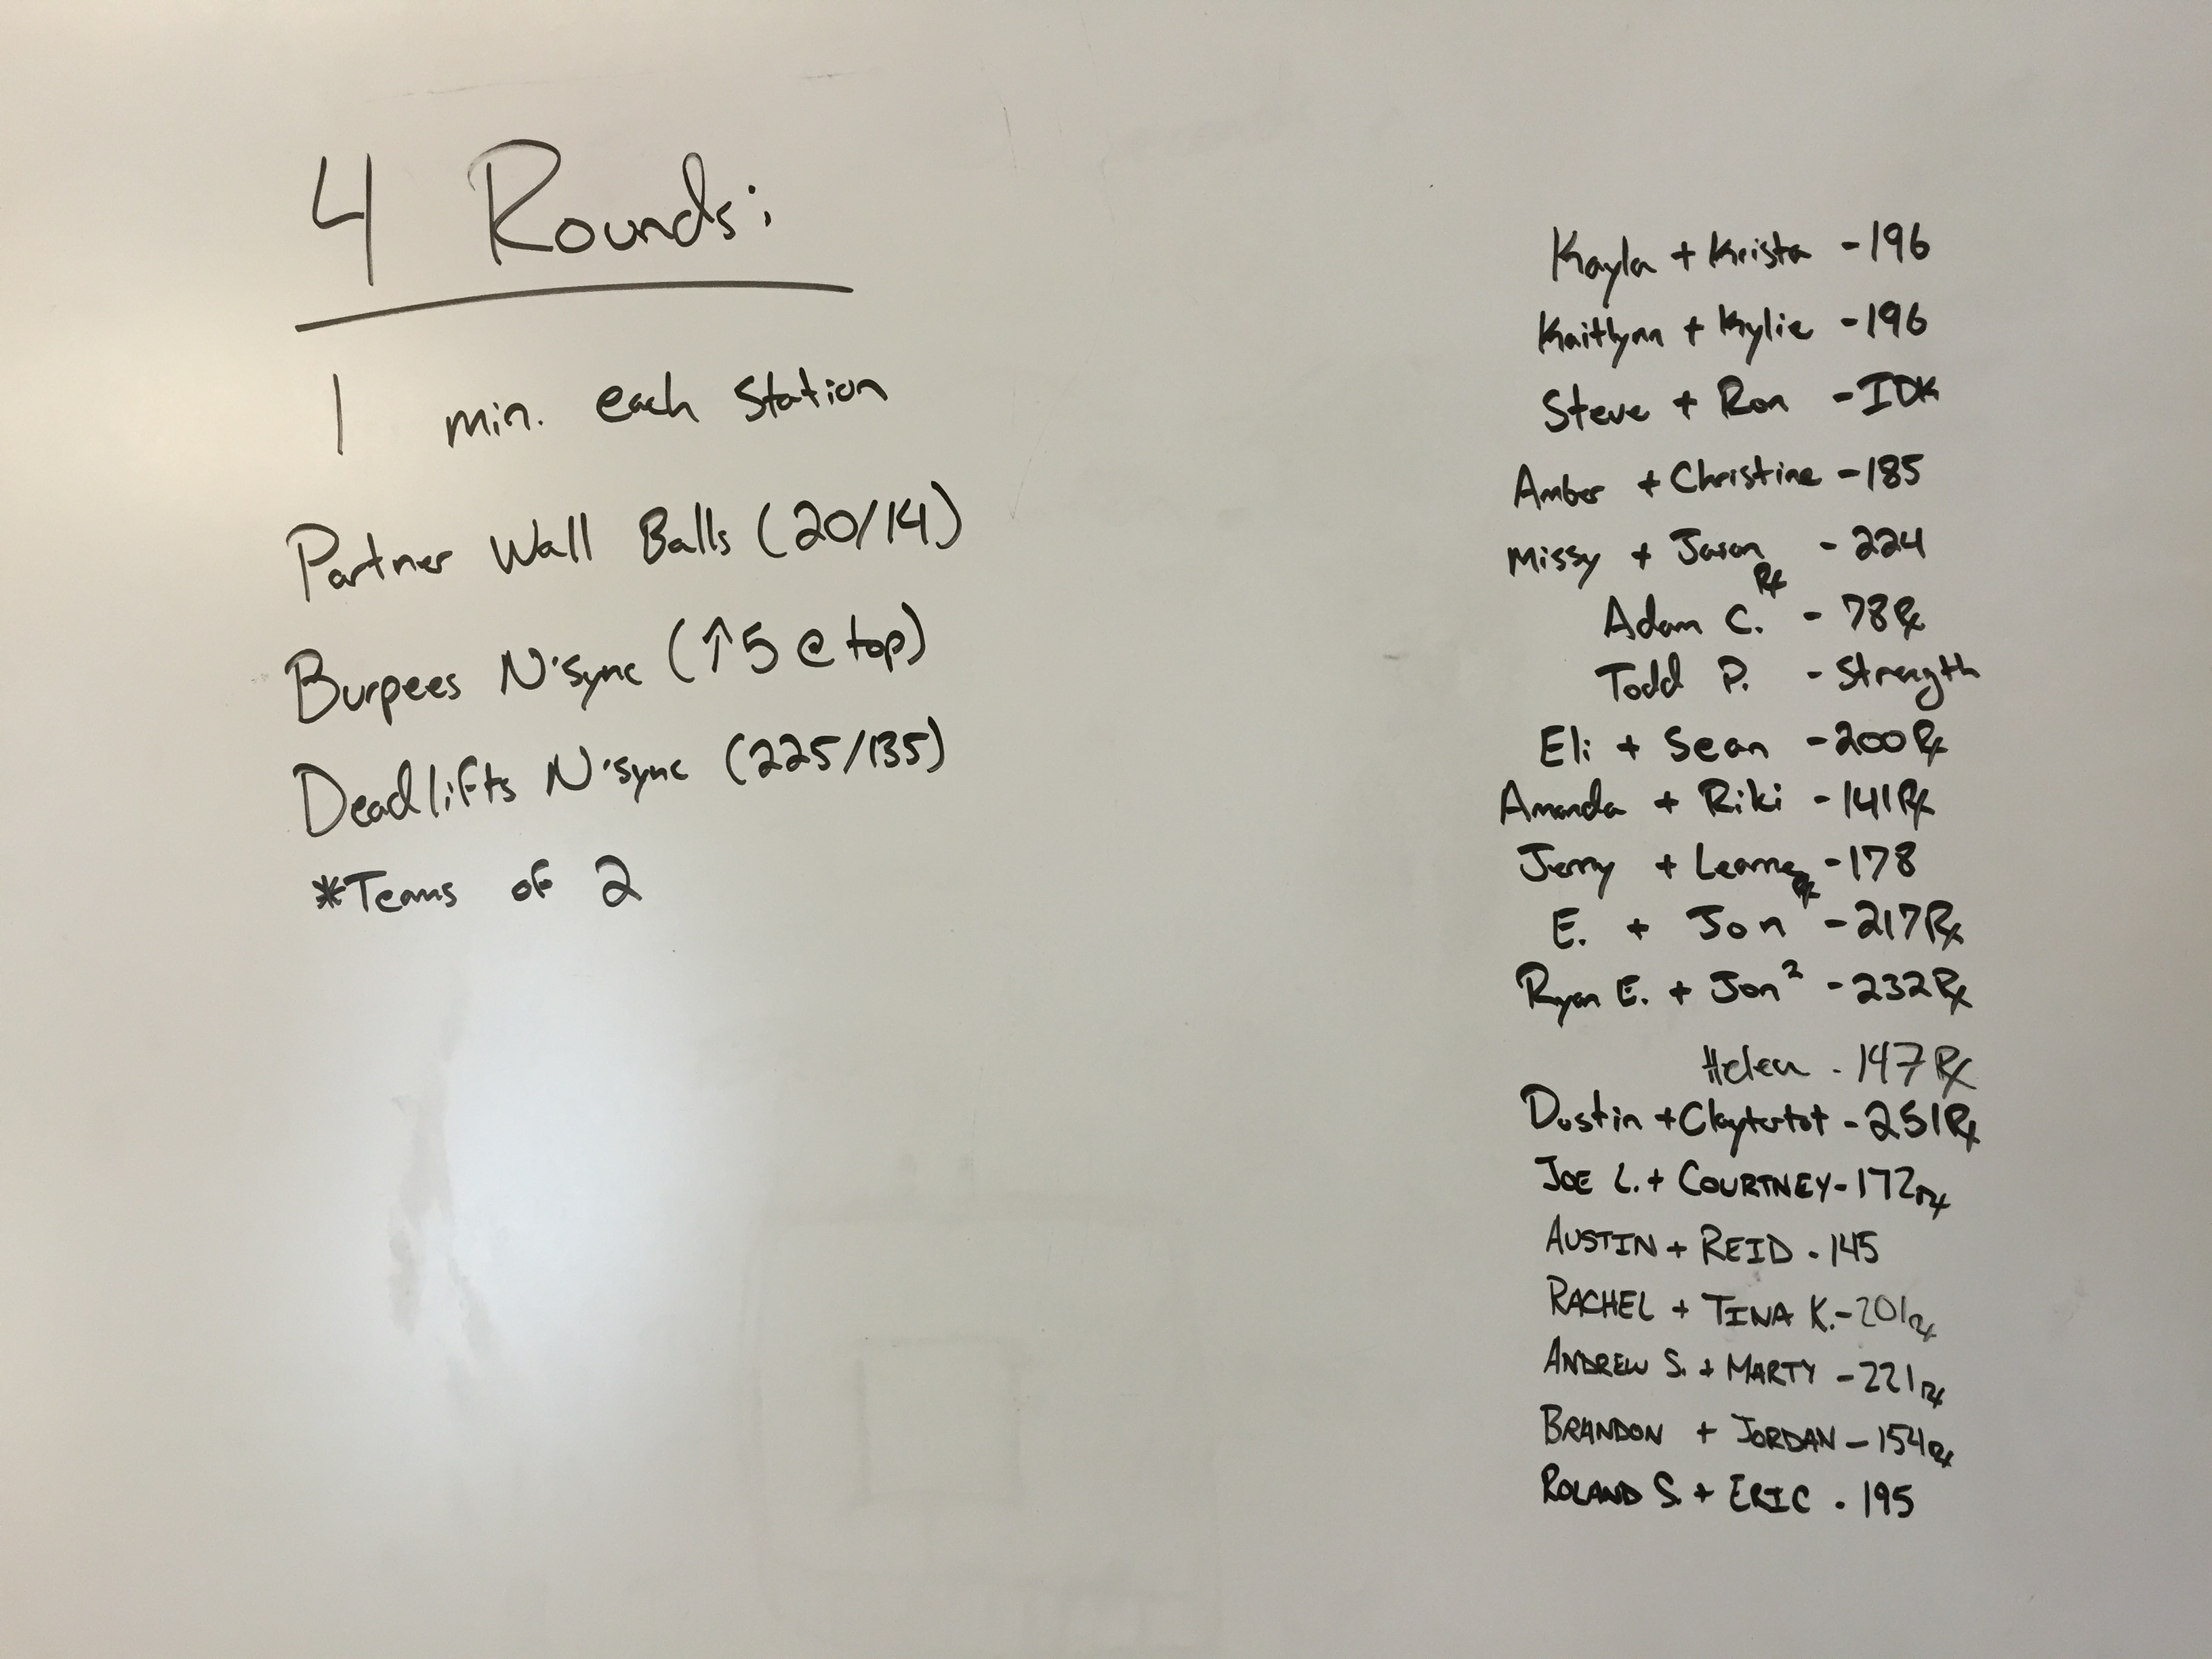 4 Rounds:
1 min. each station
Partner Wall Balls (20/14)
Burpees N'sync (↑5 @ top)
Deadlifts N'sync (225/135)
*Teams of 2
Kayla + Krista -196
Kaitlynn + Kylie -196
Steve + Ron -IDK
Amber + Christine -185
Missy + Jason Rx - 224
Adam C. - 78Rx
Todd P. - Strength
Eli + Sean -200Rx
Amanda + Riki -141Rx
Jerry + Leanne Rx -178
E. + Jon -217Rx
Ryan E. + Jon² -232Rx
Helen - 147Rx
Dustin + Claytertot - 251Rx
JOE L. + COURTNEY - 172Rx
AUSTIN + REID - 145
RACHEL + TINA K. - 201Rx
ANDREW S. + MARTY - 221Rx
BRANDON + JORDAN - 154Rx
ROLAND S. + ERIC - 195